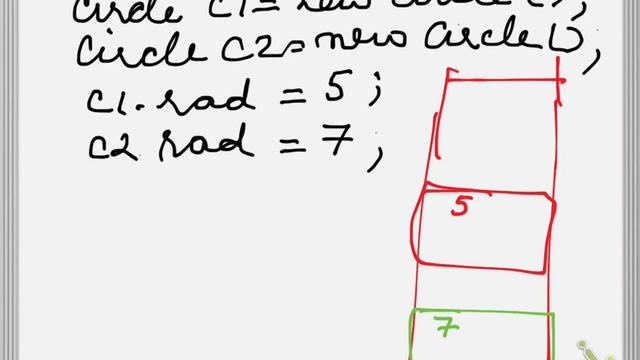 circle c1 = new circle();
circle c2 = new circle();
c1. rad = 5 ;
c2 rad = 7 ;
5
7